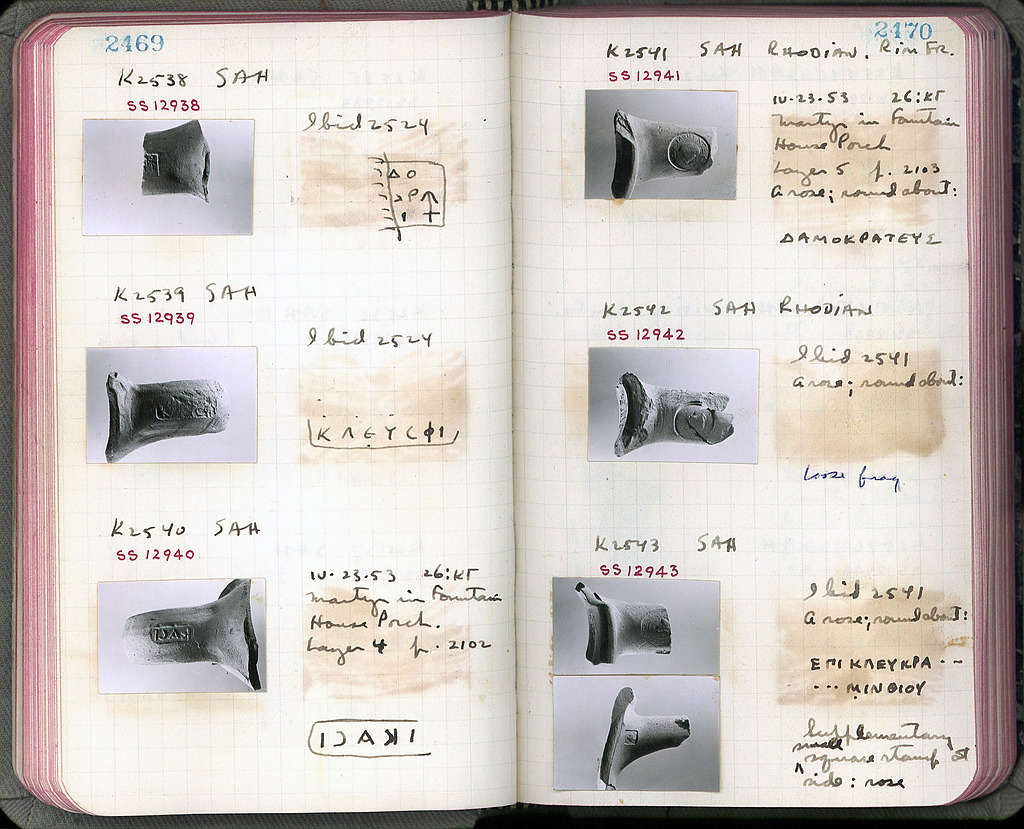 2469
K2538 SAH
SS 12938
Ibid 2524
Δ Ο
Ρ
Ι
K2539 SAH
SS 12939
Ibid 2524
ΚΛΕΥΣΦΙ
K2540 SAH
SS 12940
IV·23·53 26:ΚΓ
Martyr in Fountain
House Porch.
Layer 4 p. 2102
2470
K2541 SAH RHODIAN. Rim Fr.
SS 12941
IV·23·53 26:ΚΓ
Martyr in Fountain
House Porch
Layer 5 p. 2103
A rose; round about:
ΔΑΜΟΚΡΑΤΕΥΣ
K2542 SAH RHODIAN
SS 12942
Ibid 2541
A rose; round about:
loose frag.
K2543 SAH
SS 12943
Ibid 2541
A rose; round about:
ΕΠΙ ΚΛΕΥΚΡΑ --
--- ΜΙΝΘΙΟΥ
Supplementary
small square stamp at
side: rose